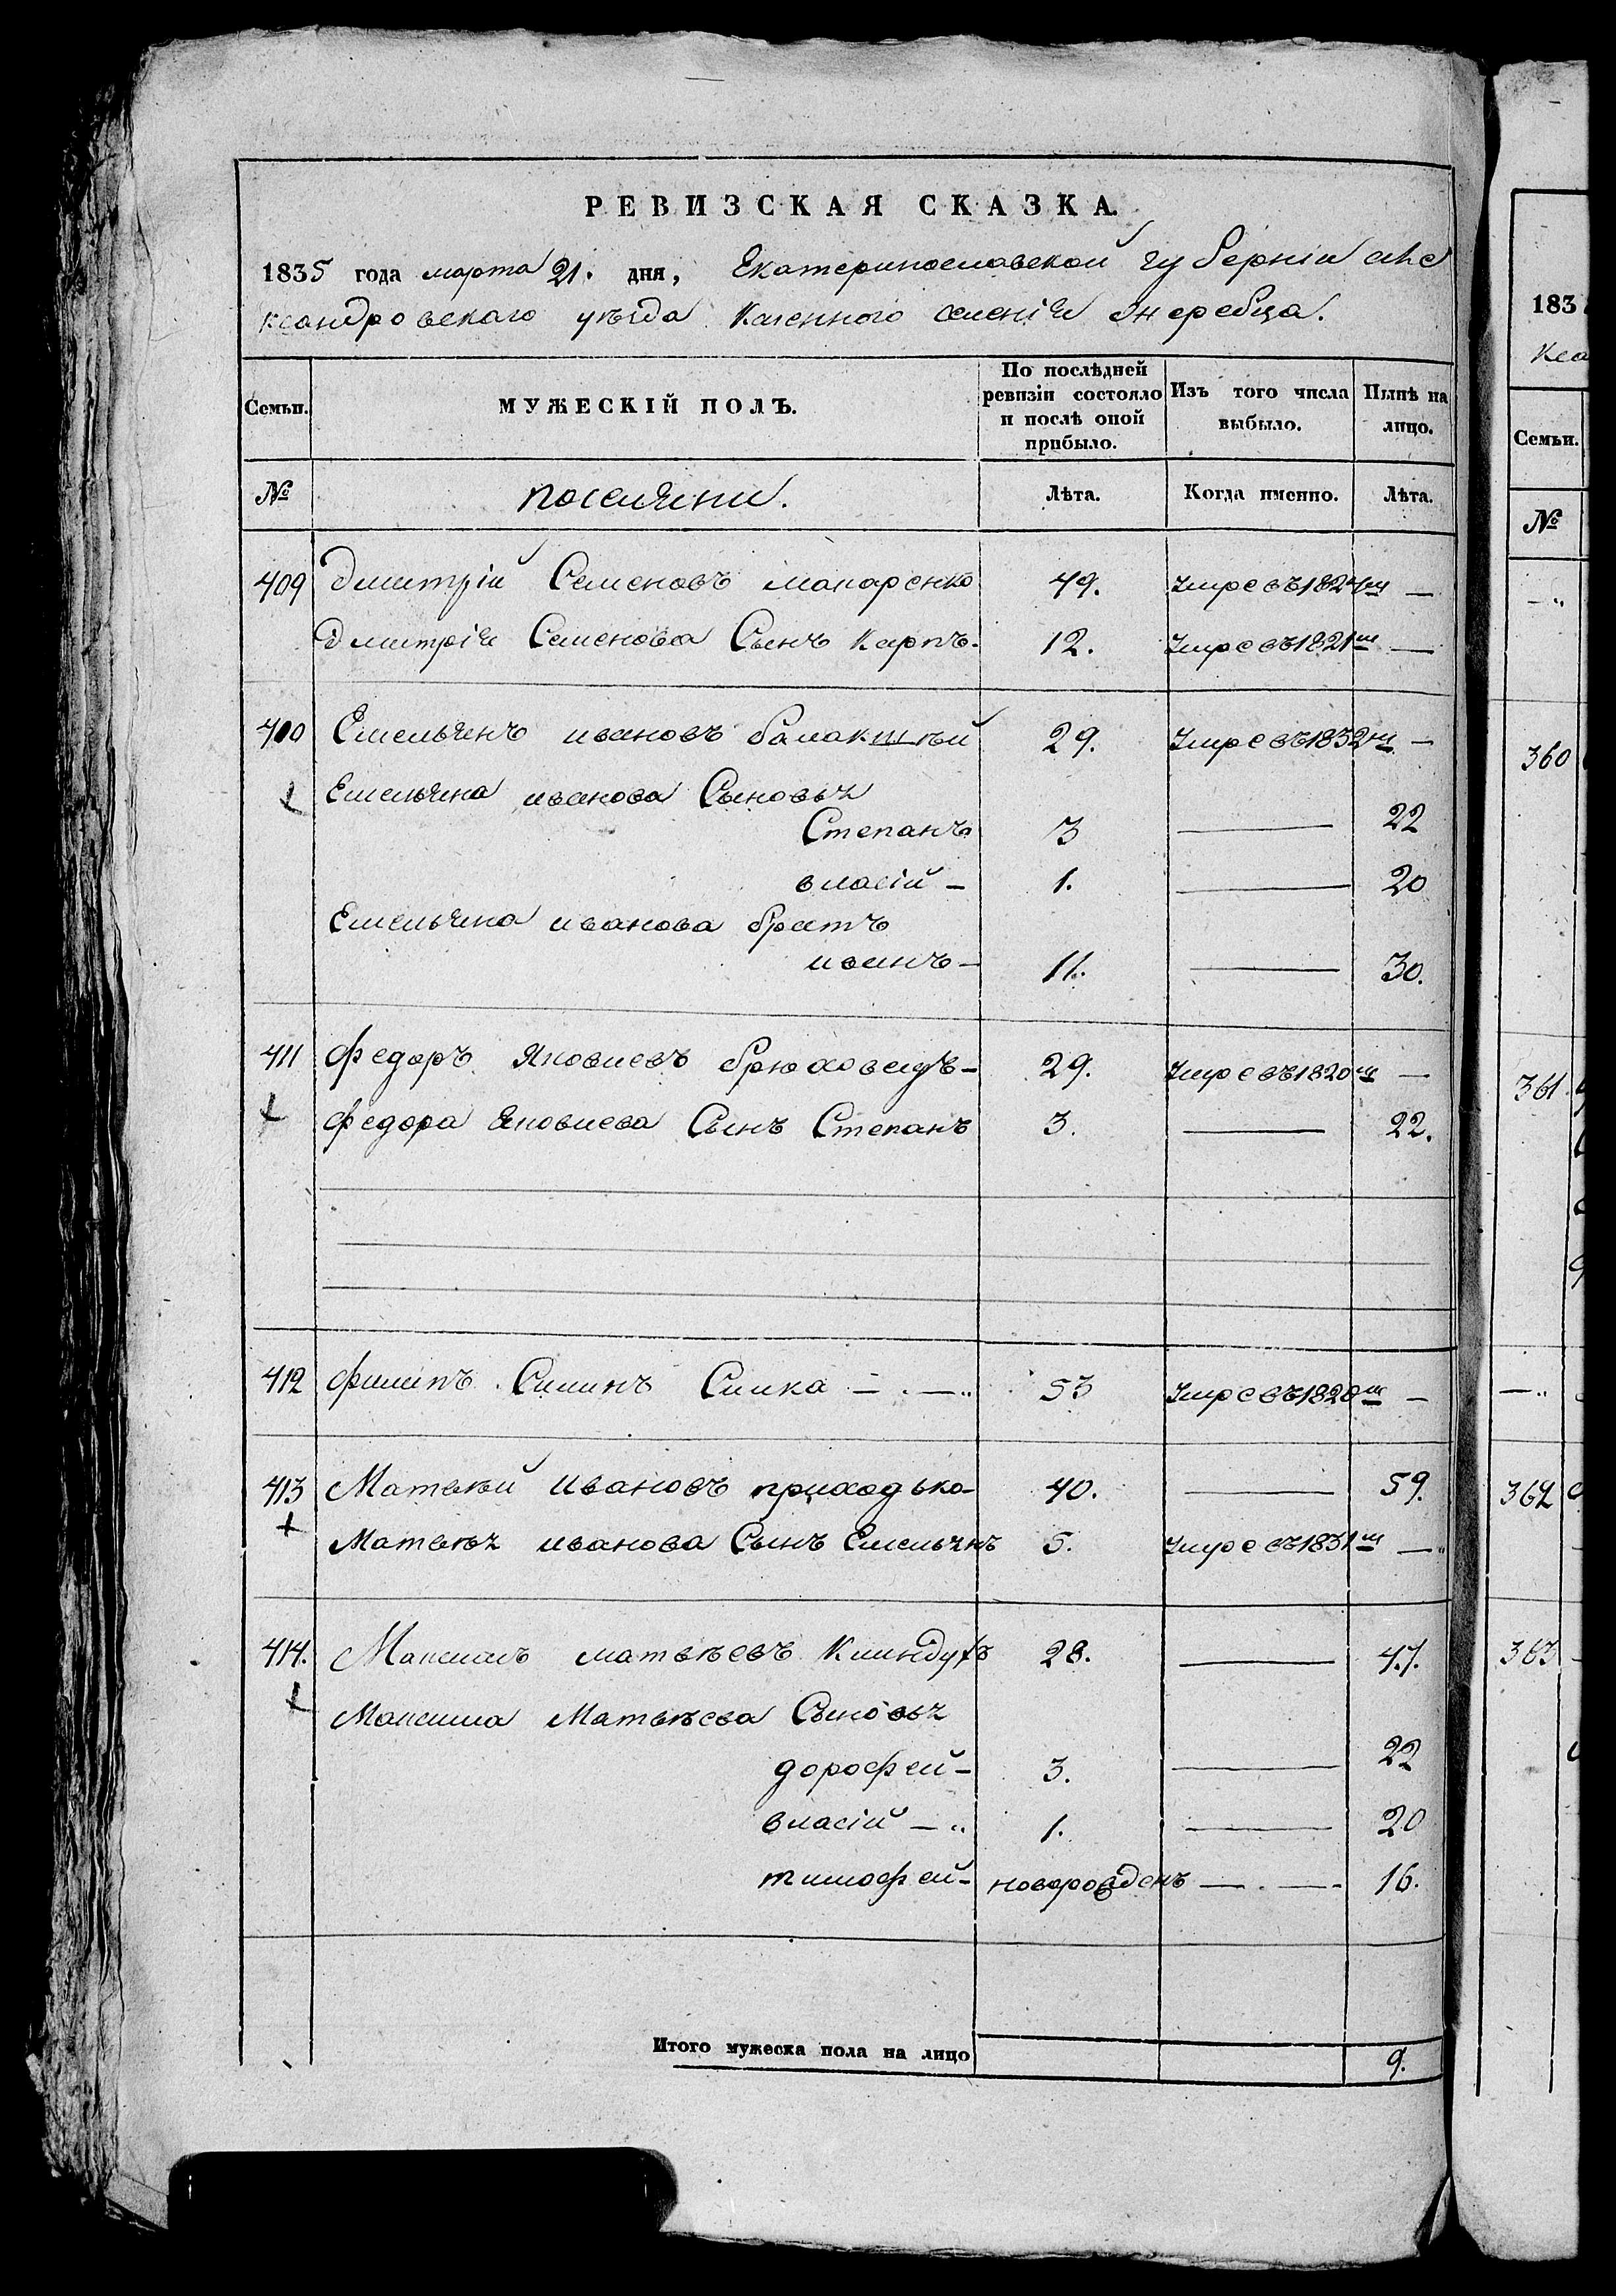 РЕВИЗСКАЯ СКАЗКА.
1835 года марта 21. дня, Екатеринославской губерніи але
ксандровскаго уѣзда Казенного селенія Жеребца.
Семьи. МУЖЕСКІЙ ПОЛЪ. По послѣдней ревизіи состояло и послѣ оной прибыло. Изъ того числа выбыло. Нынѣ на лицо.
№ поселяни. Лѣта. Когда именно. Лѣта.
409 Дмитрій Семеновъ макаренко 49. Умре въ 1824м —
Дмитрія Семенова Сынъ карпъ. 12. Умре въ 1821м —
410 Емельянъ ивановъ 29. Умре въ 1832м —
Емельяна иванова Сыновья
Степанъ 3 — 22
власій — 1. — 20
Емельяна иванова братъ
иванъ — 11. — 30.
411 Федоръ Яковлевъ брюховец — 29. Умре въ 1820м —
Федора Яковлева Сынъ Степанъ 3. — 22.
412 Филипъ Силинъ Силка — . — 53 Умре въ 1820м —
413 Матвѣй Ивановъ приходько — 40. — 59.
Матвѣя иванова Сынъ Емельянъ 5. Умре въ 1831м —
414. Максимъ матвѣевъ 28. — 47.
Максима Матвѣева Сыновья
дорофей — 3. — 22
власій — 1. — 20
тимофей — новорожденъ — . — . 16.
Итого мужеска пола на лицо 9.
183
Кса
Семьи.
№
360
361
362
363